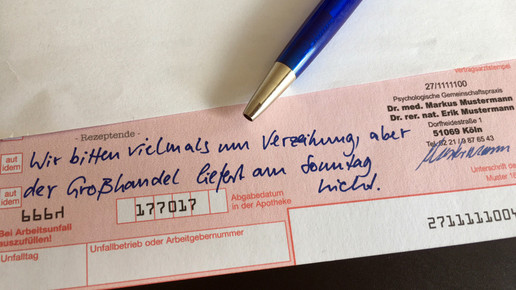 Vertragsarztstempel
27/1111100
Psychologische Gemeinschaftspraxis
Dr. med. Markus Mustermann
Dr. rer. nat. Erik Mustermann
Dorfheidestraße 1
51069 Köln
Tel. 02 21 / 9 87 65 43
Mustermann
- Rezeptende -
aut idem
Wir bitten vielmals um Verzeihung, aber
aut idem
der Großhandel liefert am Sonntag
nicht.
666H
177017
Abgabedatum
in der Apotheke
Unterschrift
Muster 16
Bei Arbeitsunfall
auszufüllen!
Unfalltag
Unfallbetrieb oder Arbeitgebernummer